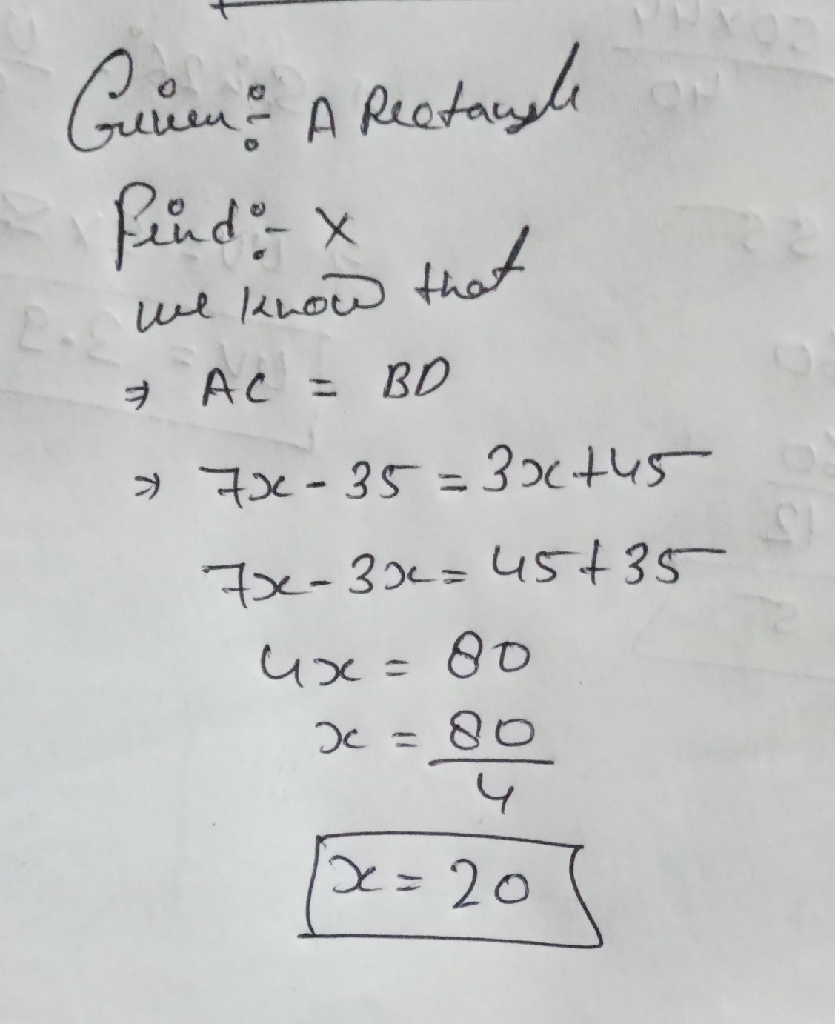 Given:- A Rectangle
Find:- x
we know that
⇒ AC = BD
⇒ 7x - 35 = 3x + 45
7x - 3x = 45 + 35
4x = 80
x = 80/4
x = 20